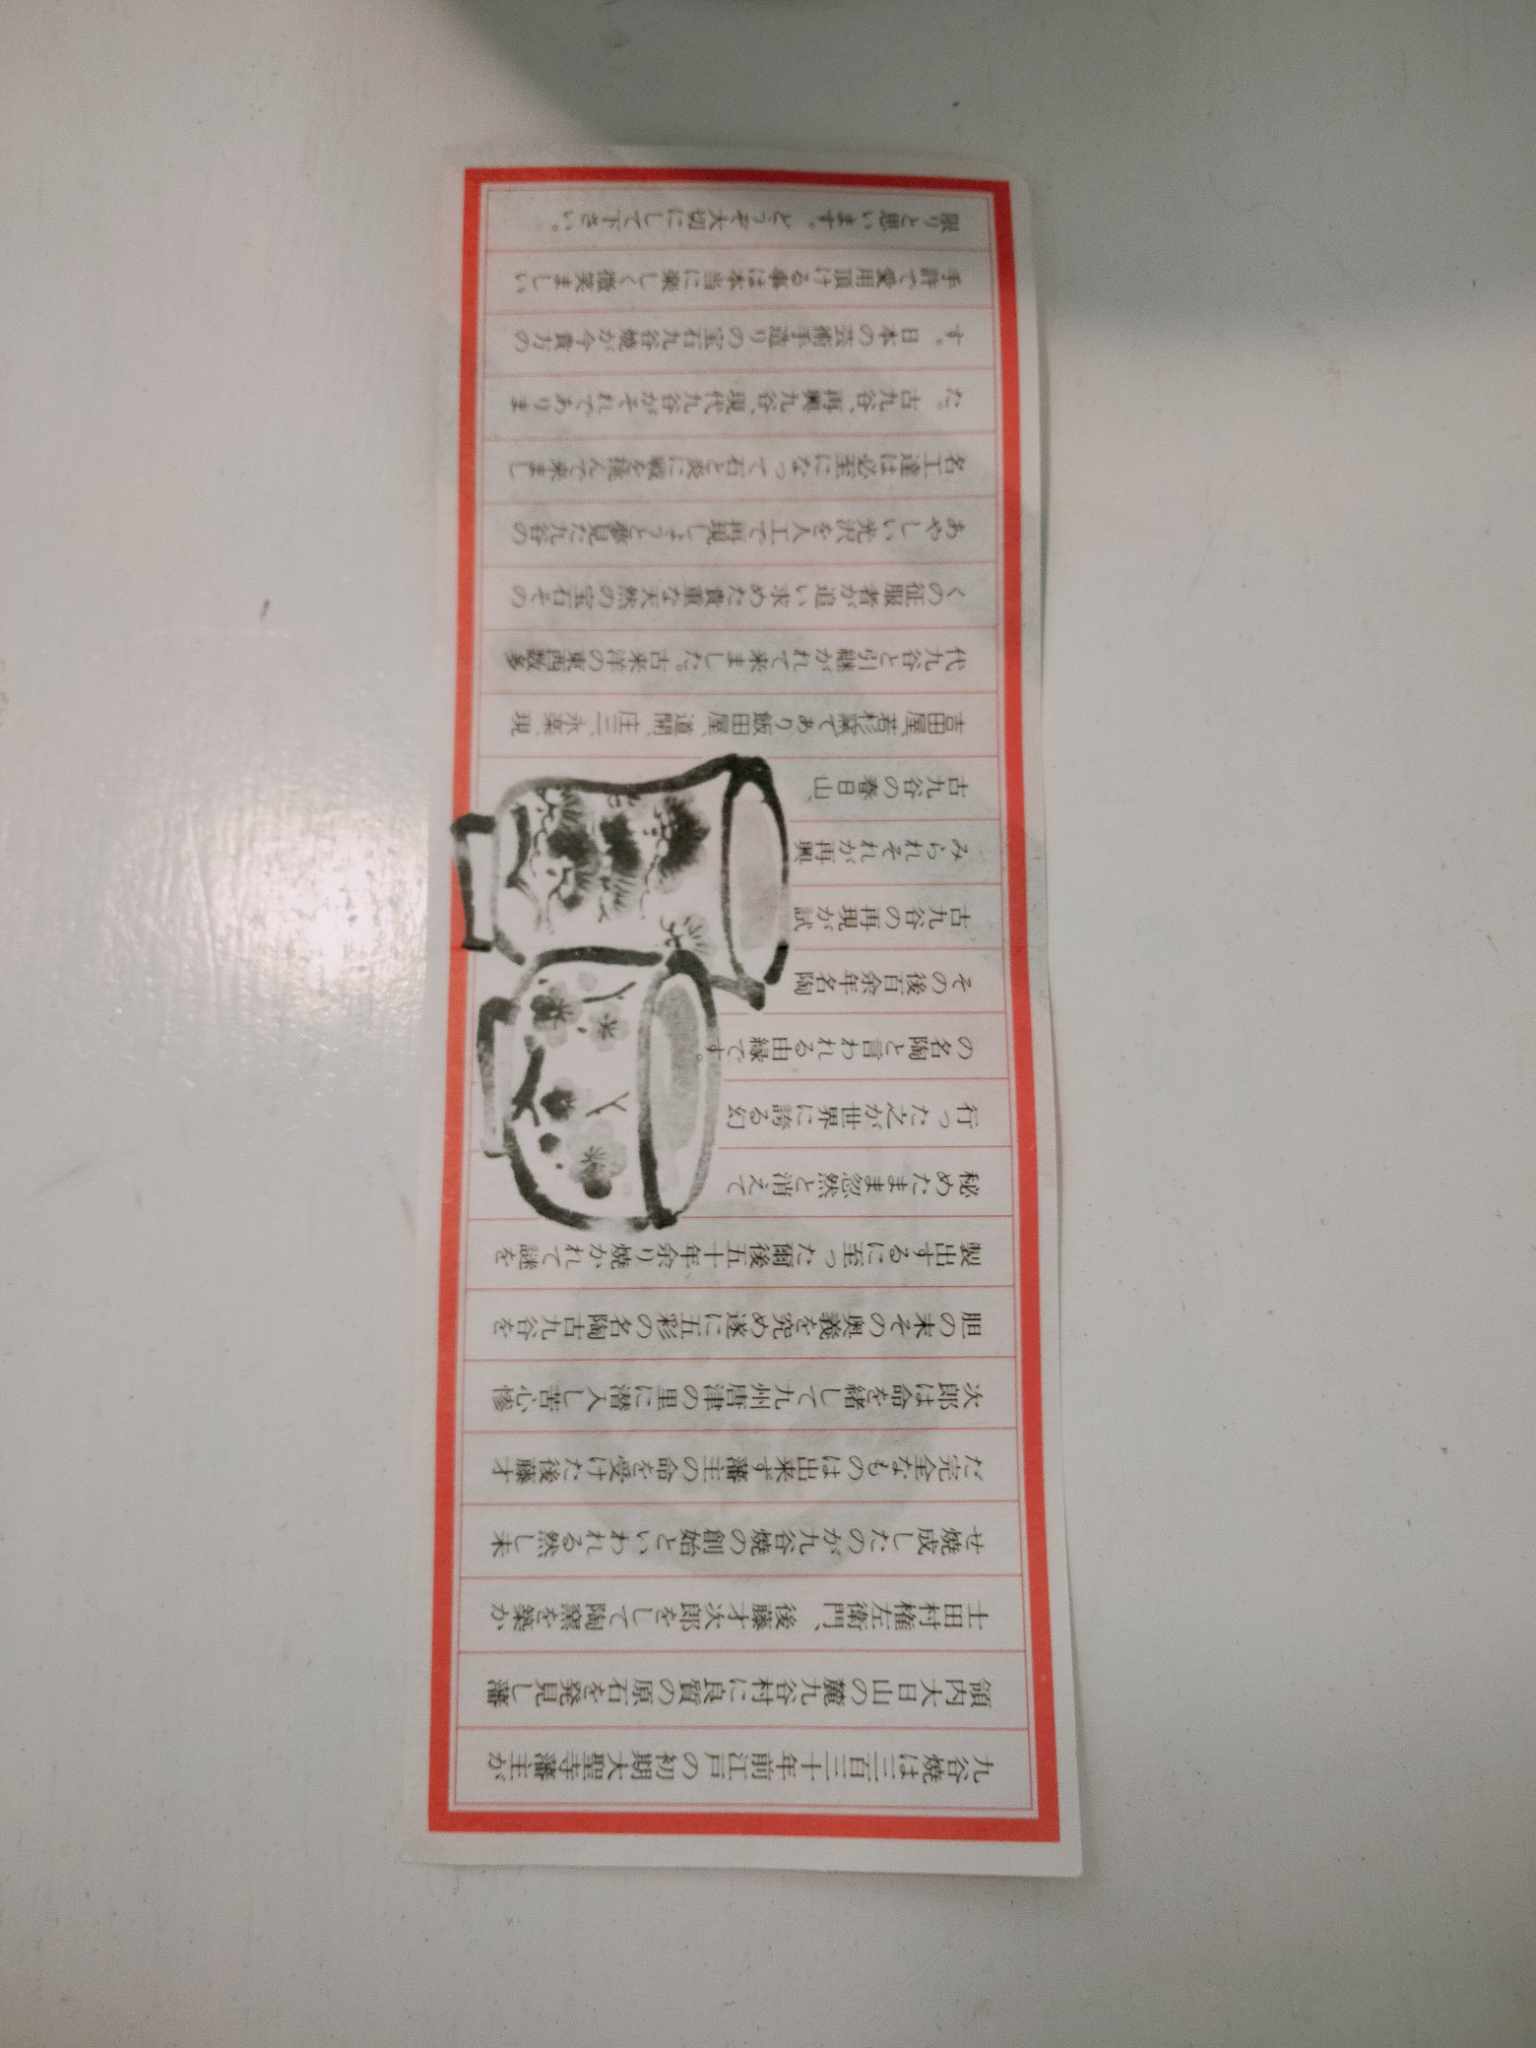 九谷焼は三百三十年前江戸の初期大聖寺藩主が
領内大日山の麓九谷村に良質の原石を発見し藩
士田村権左衛門、後藤才次郎をして陶窯を築か
せ焼成したのが九谷焼の創始といわれる然し未
だ完全なものは出来ず藩主の命を受けた後藤才
次郎は命を緒して九州唐津の里に潜入し苦心惨
胆の末その奥義を究め遂に五彩の名陶古九谷を
製出するに至った爾後五十年余り焼かれて謎を
秘めたまま忽然と消えて
行った之が世界に誇る幻
の名陶と言われる由縁です。
その後百余年名陶
古九谷の再現が試
みられそれが再興
古九谷の春日山、
吉田屋、若杉窯であり飯田屋、道開、庄三、永楽、現
代九谷と引継がれて来ました。古来洋の東西数多
くの征服者が追い求めた貴重な天然の宝石その
あやしい光沢を人工で再現しようと夢見た九谷の
名工達は必至になって石と炎に戦を挑んで来まし
た。古九谷、再興九谷、現代九谷がそれでありま
す。日本の芸術手造りの宝石九谷焼が今貴方の
手許で愛用頂ける事は本当に楽しく微笑ましい
限りと思います。どうぞ大切にして下さい。